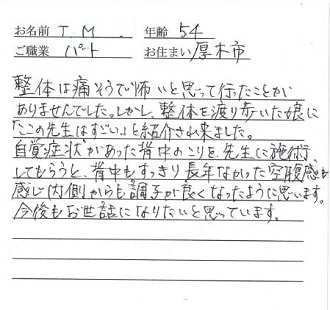 お名前 T.M. 年齢 54
ご職業 パート お住まい 厚木市
整体は痛そうで怖いと思って行ったことが
ありませんでした。しかし、整体を渡り歩いた娘に
「ここの先生はすごい」と紹介され来ました。
自覚症状があった背中のこりを、先生に施術
してもらうと、背中もすっきり、長年なかった空腹感も
感じ内側からも調子が良くなったように思います。
今後もお世話になりたいと思っています。